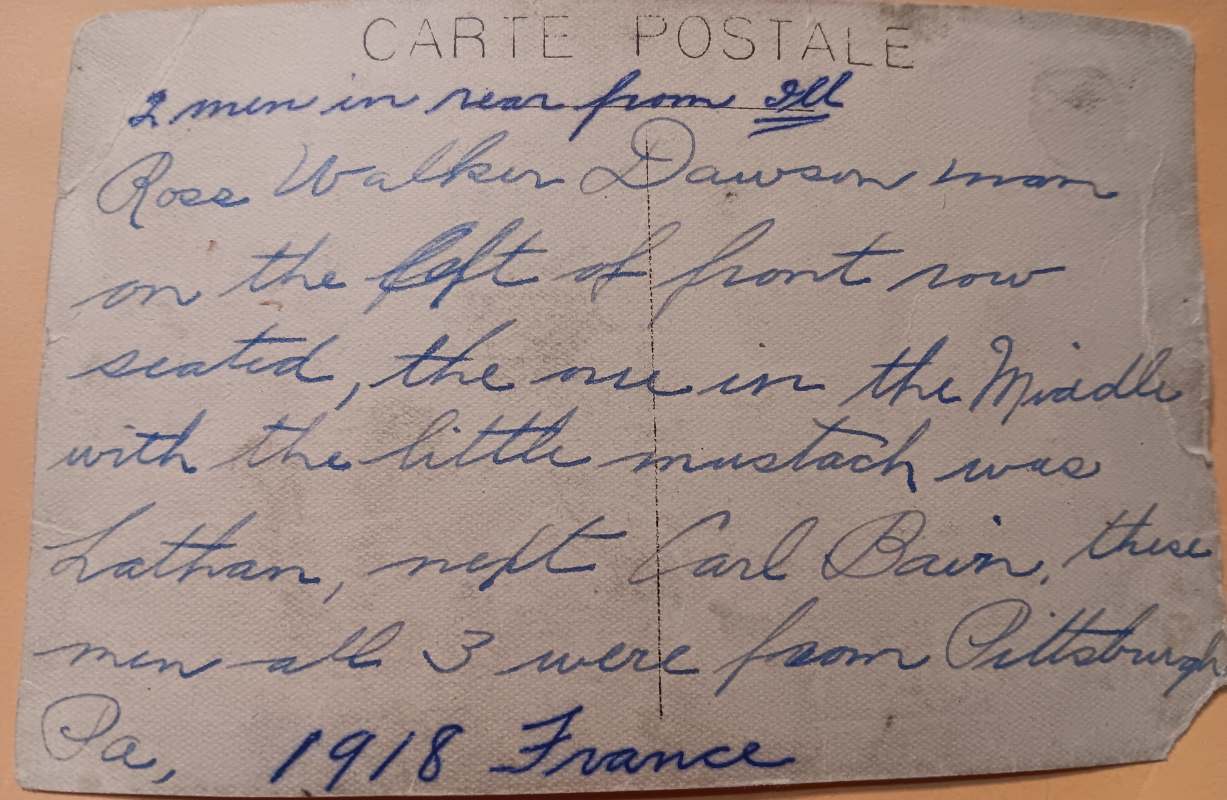 CARTE POSTALE
2 men in rear from Ill
Ross Walker Dawson man
on the left of front row
seated, the one in the Middle
with the little mustach was
Lathan, next Carl Bain, these
men all 3 were from Pittsburgh
Pa, 1918 France